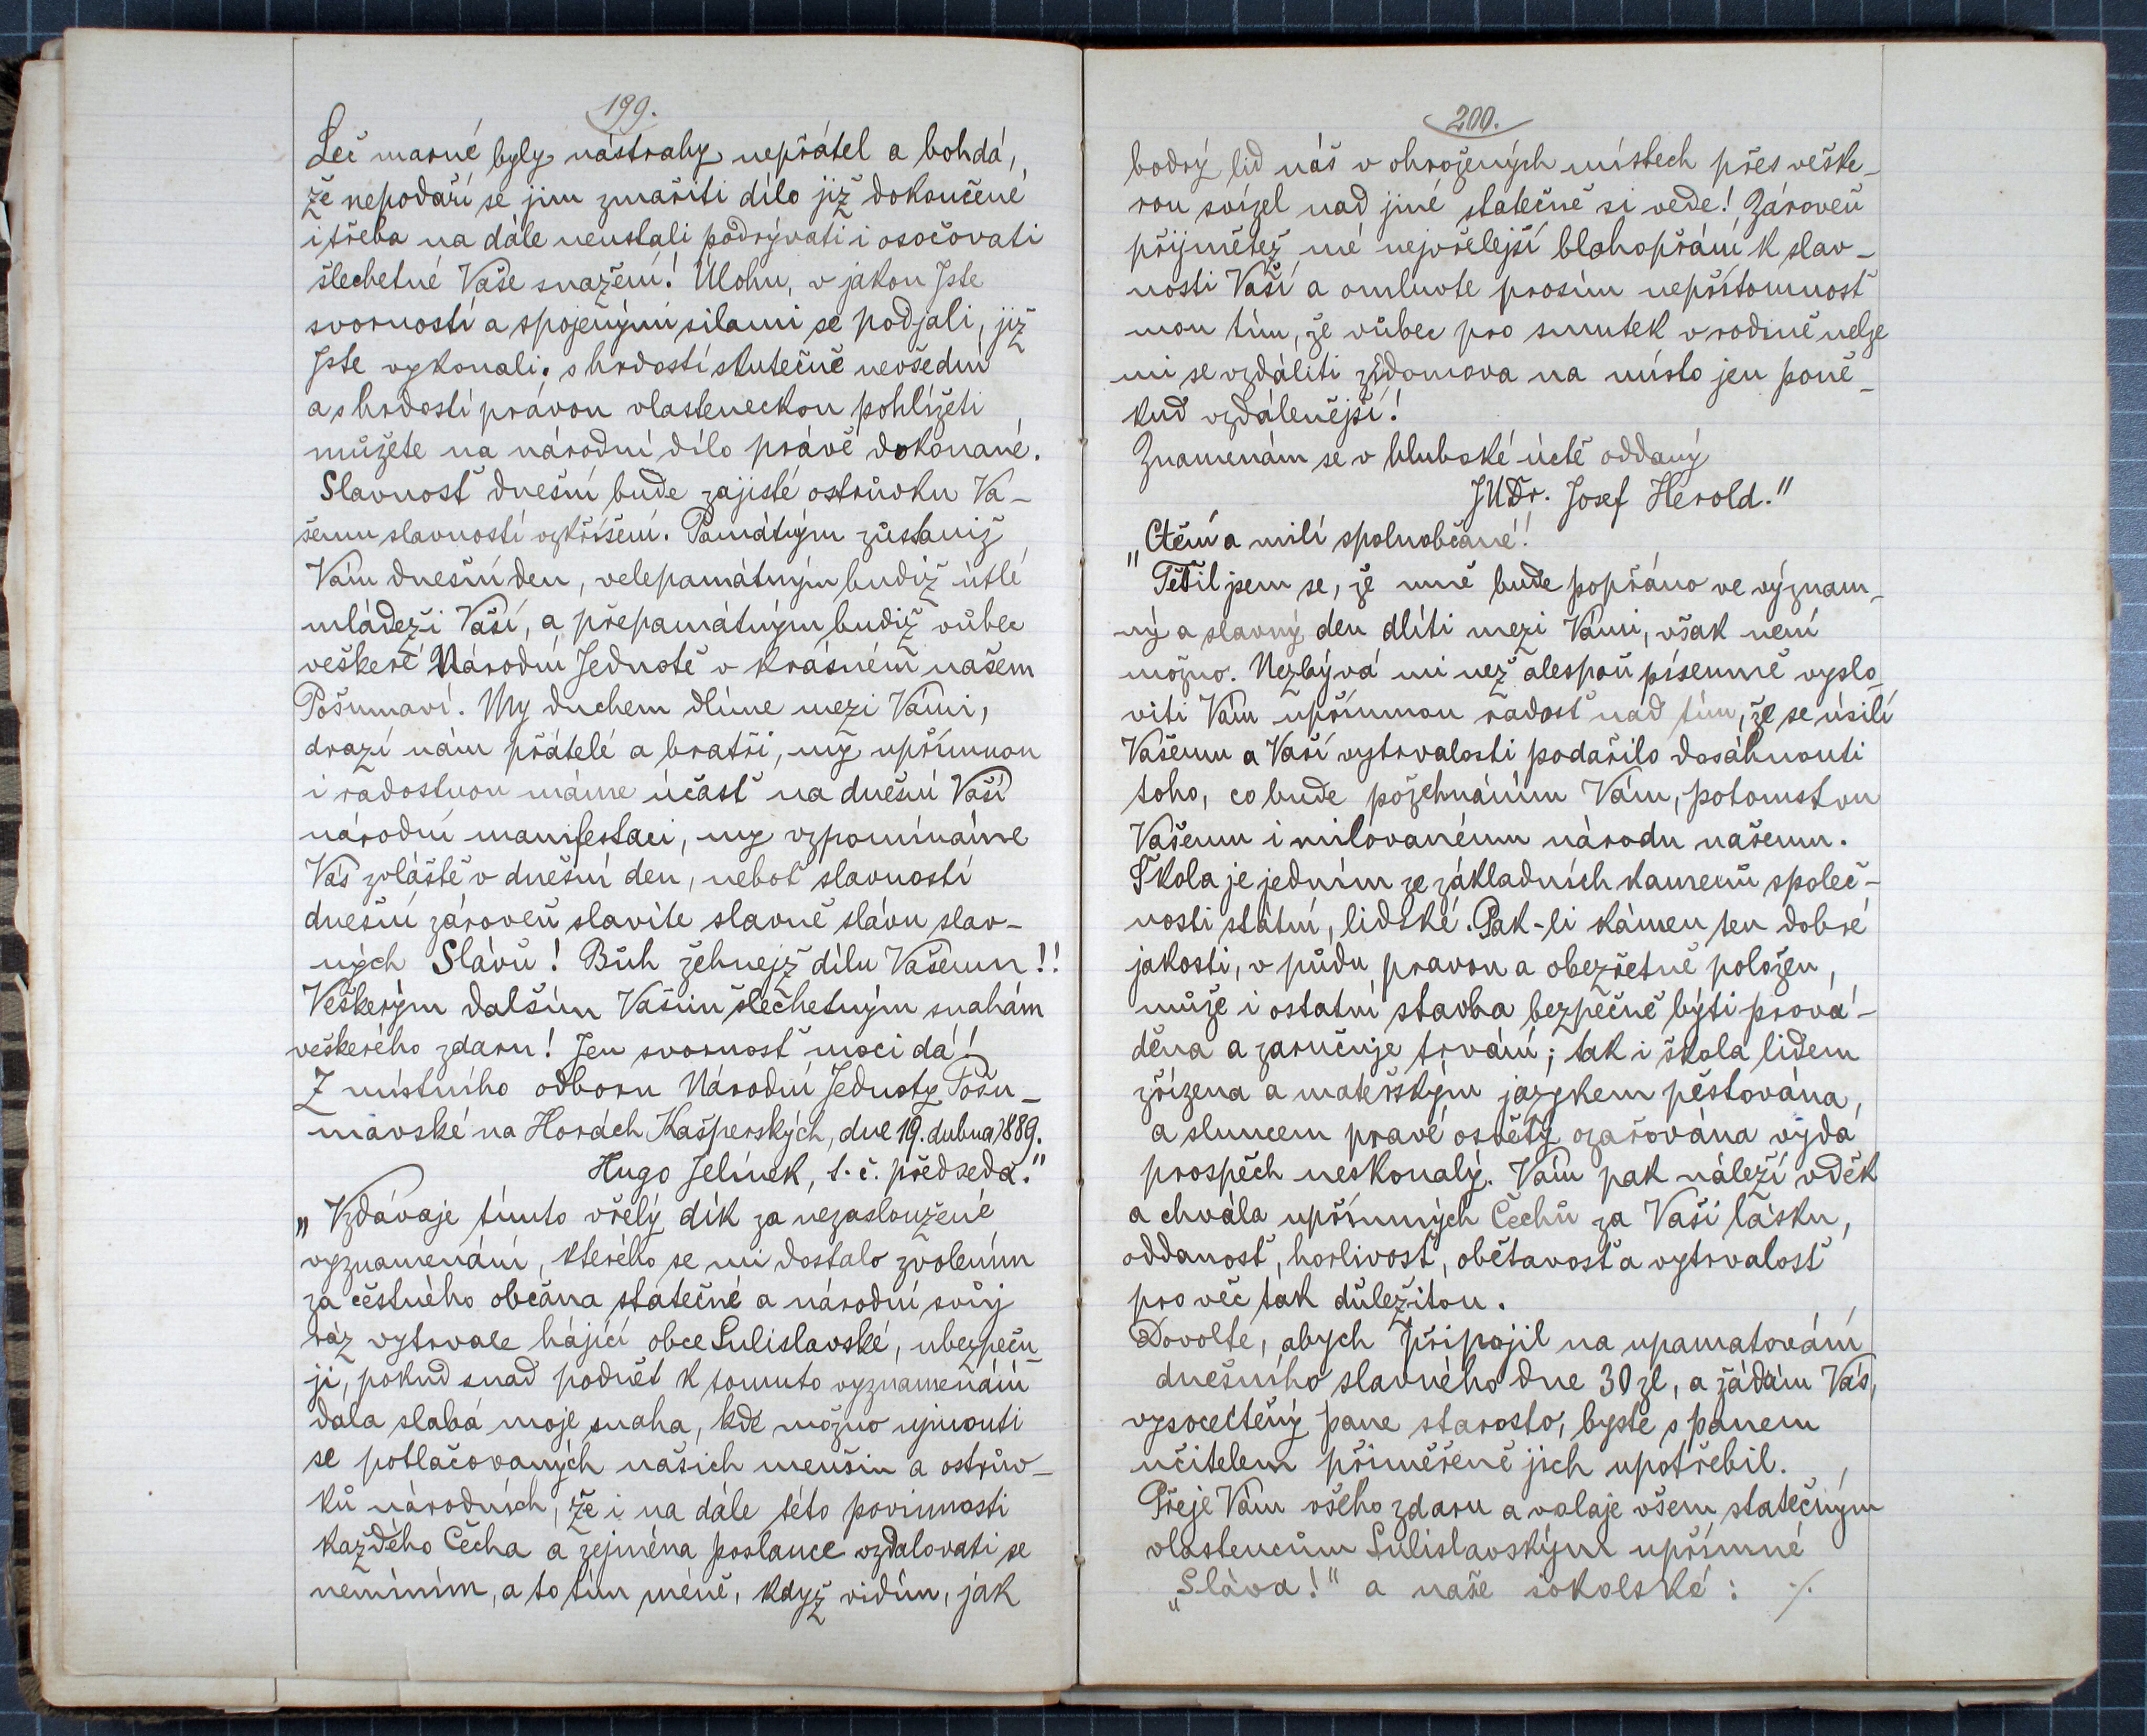 199.
Leč marné byly nástrahy nepřátel a bohdá,
že nepodaří se jim zmařiti dílo již dokončené
i třeba na dále neustali podrývati i osočovati
šlechetné Vaše snažení! Úlohu, v jakou Jste
svorností a spojenými silami se podjali, již
Jste vykonali; s hrdostí skutečně nevšední
a s hrdostí právou vlasteneckou pohlížeti
můžete na národní dílo právě dokonané.
Slavnosť dnešní bude zajisté ostrůvku Va-
šemu slavností vzkříšení. Památným zůstaniž
Vám dnešní den, velepamátným budiž útlé
mládeži Vaší, a přepamátným budiž vůbec
veškeré Národní Jednotě v krásném našem
Pošumaví. My duchem dlíme mezi Vámi,
drazí nám přátelé a bratři, my upřímnou
i radostnou máme účasť na dnešní Vaší
národní manifestaci, my vzpomínáme
Vás zvláště v dnešní den, neboť slavností
dnešní zároveň slavíte slavně slávu slav-
ných Slávů! Bůh žehnejž dílu Vašemu!!
Veškerým dalším Vašim šlechetným snahám
veškerého zdaru! Jen svornosť moci dá!
Z místního odboru Národní Jednoty Pošu-
mavské na Horách Kašperských, dne 19. dubna 1889.
Hugo Jelínek, t. č. předseda."
„Vzdávaje tímto vřelý dík za nezasloužené
vyznamenání, kterého se mi dostalo zvolením
za čestného občana statečné a národní svůj
ráz vytrvale hájící obce Sulislavské, ubezpeču-
ji, pokud snad podnět k tomuto vyznamenání
dala slabá moje snaha, kde možno ujmouti
se potlačovaných našich menšin a ostrův-
ků národních, že i na dále této povinnosti
každého Čecha a zejména poslance vzdalovati se
nemíním, a to tím méně, když vidím, jak
200.
bodrý lid náš v ohrožených místech přes veške-
rou svízel nad jiné statečně si vede! Zároveň
přijmětež mé nejvřelejší blahopřání k slav-
nosti Vaší a omluvte prosím nepřítomnosť
mou tím, že vůbec pro smutek v rodině nelze
mi se vzdáliti z domova na místo jen poně-
kud vzdálenější!
Znamenám se v hluboké úctě oddaný
JUDr. Josef Herold."
„Ctění a milí spoluobčané!
Těšil jsem se, že mně bude popřáno ve význam-
ný a slavný den dlíti mezi Vámi, však není
možno. Nezbývá mi než alespoň písemně vyslo-
viti Vám upřímnou radosť nad tím, že se úsilí
Vašemu a Vaší vytrvalosti podařilo dosáhnouti
toho, co bude požehnáním Vám, potomstvu
Vašemu i milovanému národu našemu.
Škola je jedním ze základních kamenů společ-
nosti státní, lidské. Pak-li kámen ten dobré
jakosti, v půdu pravou a obezřetně položen,
může i ostatní stavba bezpečně býti prová-
děna a zaručuje trvání; tak i škola lidem
zřízena a mateřským jazykem pěstována,
a sluncem pravé osvěty ozařována vydá
prospěch neskonalý. Vám pak náleží vděk
a chvála upřímných Čechů za Vaši lásku,
oddanosť, horlivosť, obětavosť a vytrvalosť
pro věc tak důležitou.
Dovolte, abych připojil na upamatování
dnešního slavného dne 30 zl, a žádám Vás,
vysocectěný pane starosto, byste s panem
učitelem přiměřeně jich upotřebil.
Přeje Vám všeho zdaru a volaje všem statečným
vlastencům Sulislavským upřímné
„Sláva!" a naše sokolské: ./.